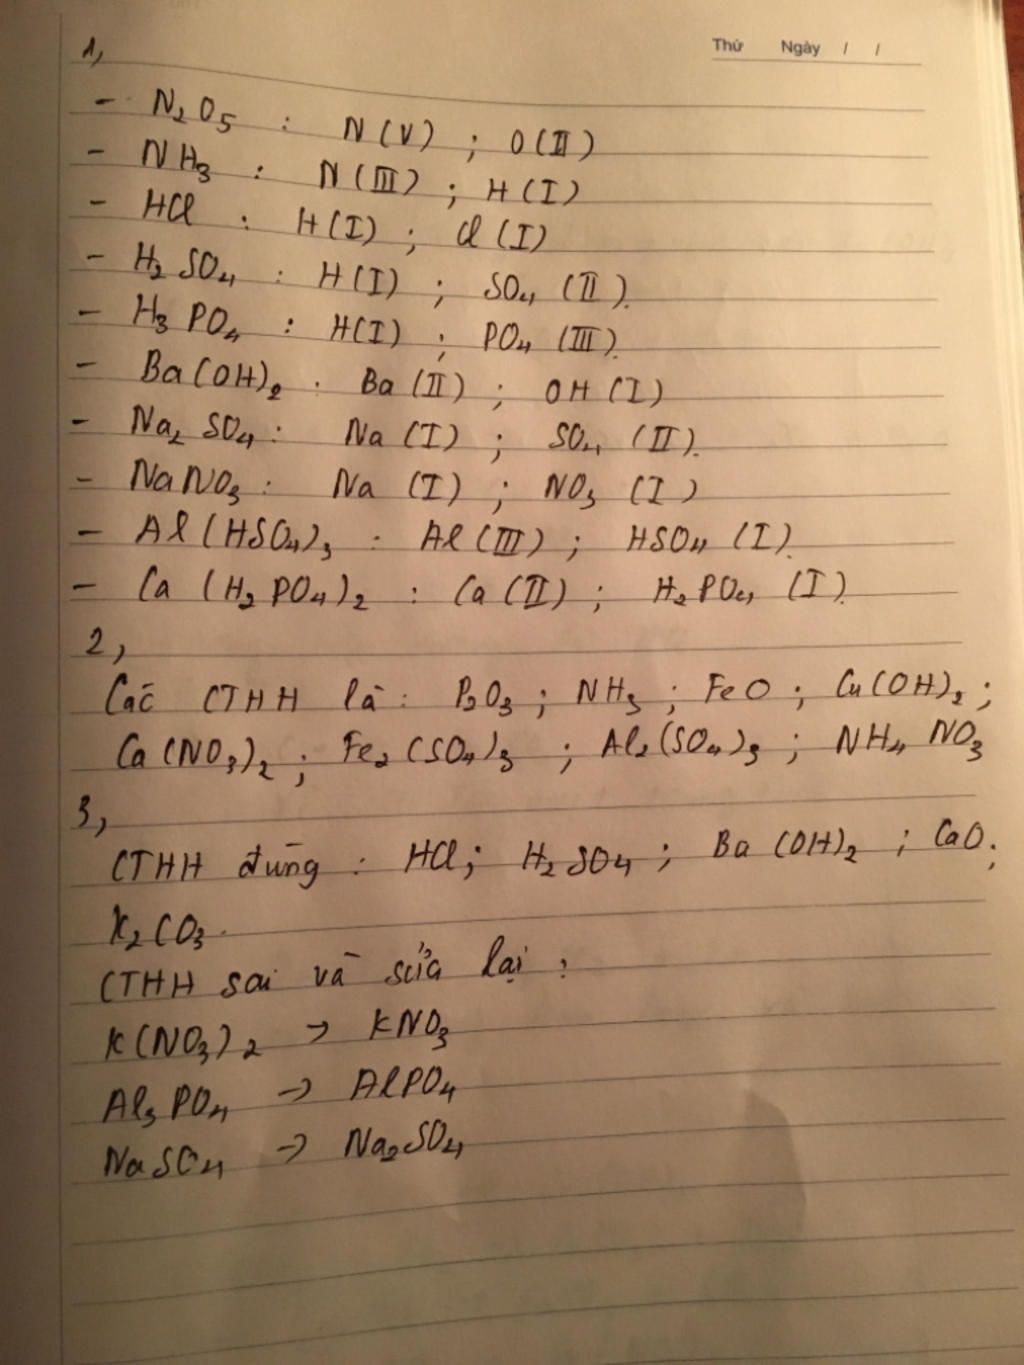 Thứ Ngày / /
1,
- N₂O₅ : N(V) ; O(II)
- NH₃ : N(III) ; H(I)
- HCl : H(I) ; Cl(I)
- H₂SO₄ : H(I) ; SO₄ (II).
- H₃PO₄ : H(I) ; PO₄ (III).
- Ba(OH)₂ : Ba(II) ; OH(I)
- Na₂SO₄ : Na(I) ; SO₄ (II).
- NaNO₃ : Na (I) ; NO₃ (I)
- Al(HSO₄)₃ : Al(III) ; HSO₄ (I).
- Ca(H₂PO₄)₂ : Ca(II) ; H₂PO₄ (I).
2,
Các CTHH là : P₂O₃ ; NH₃ ; FeO ; Cu(OH)₂ ;
Ca(NO₃)₂ ; Fe₂(SO₄)₃ ; Al₂(SO₄)₃ ; NH₄NO₃
3,
CTHH đúng : HCl ; H₂SO₄ ; Ba(OH)₂ ; CaO ;
K₂CO₃.
CTHH sai và sửa lại :
K(NO₃)₂ → KNO₃
Al₃PO₄ → AlPO₄
NaSO₄ → Na₂SO₄